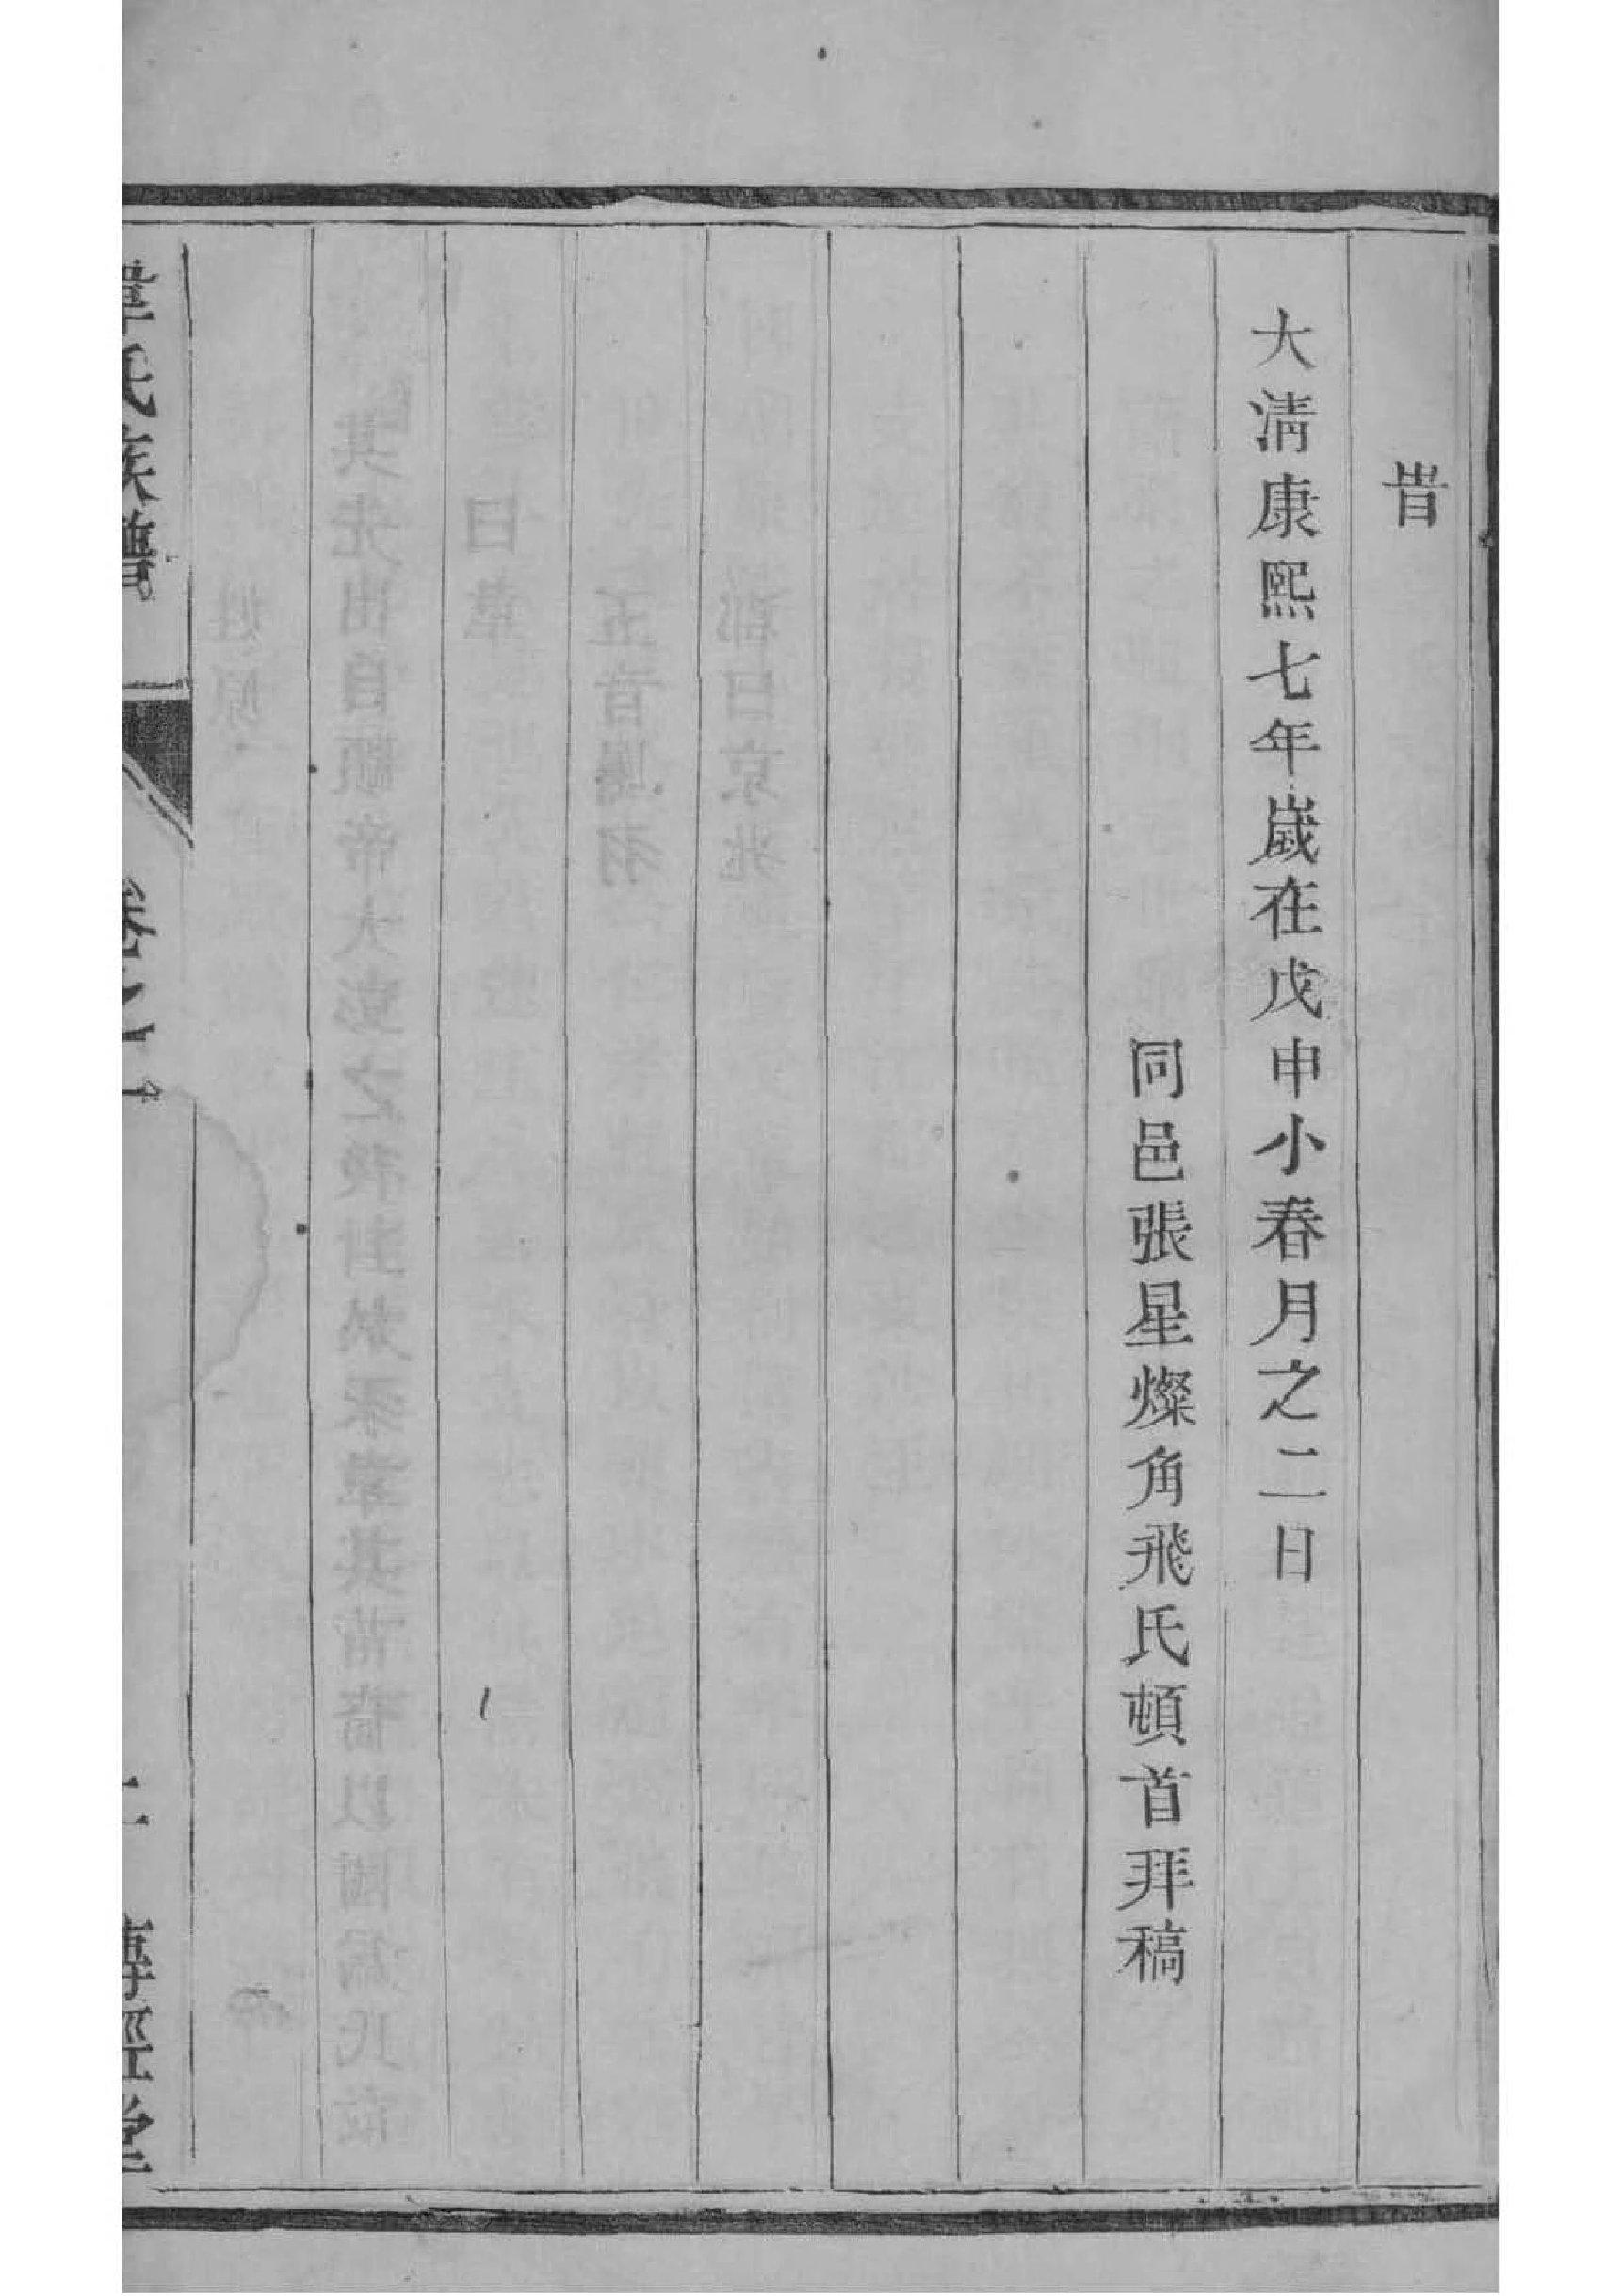 旹
大淸康熙七年歲在戊申小春月之二日
同邑張星燦角飛氏頓首拜稿
韋氏族譜
卷之
傳經堂